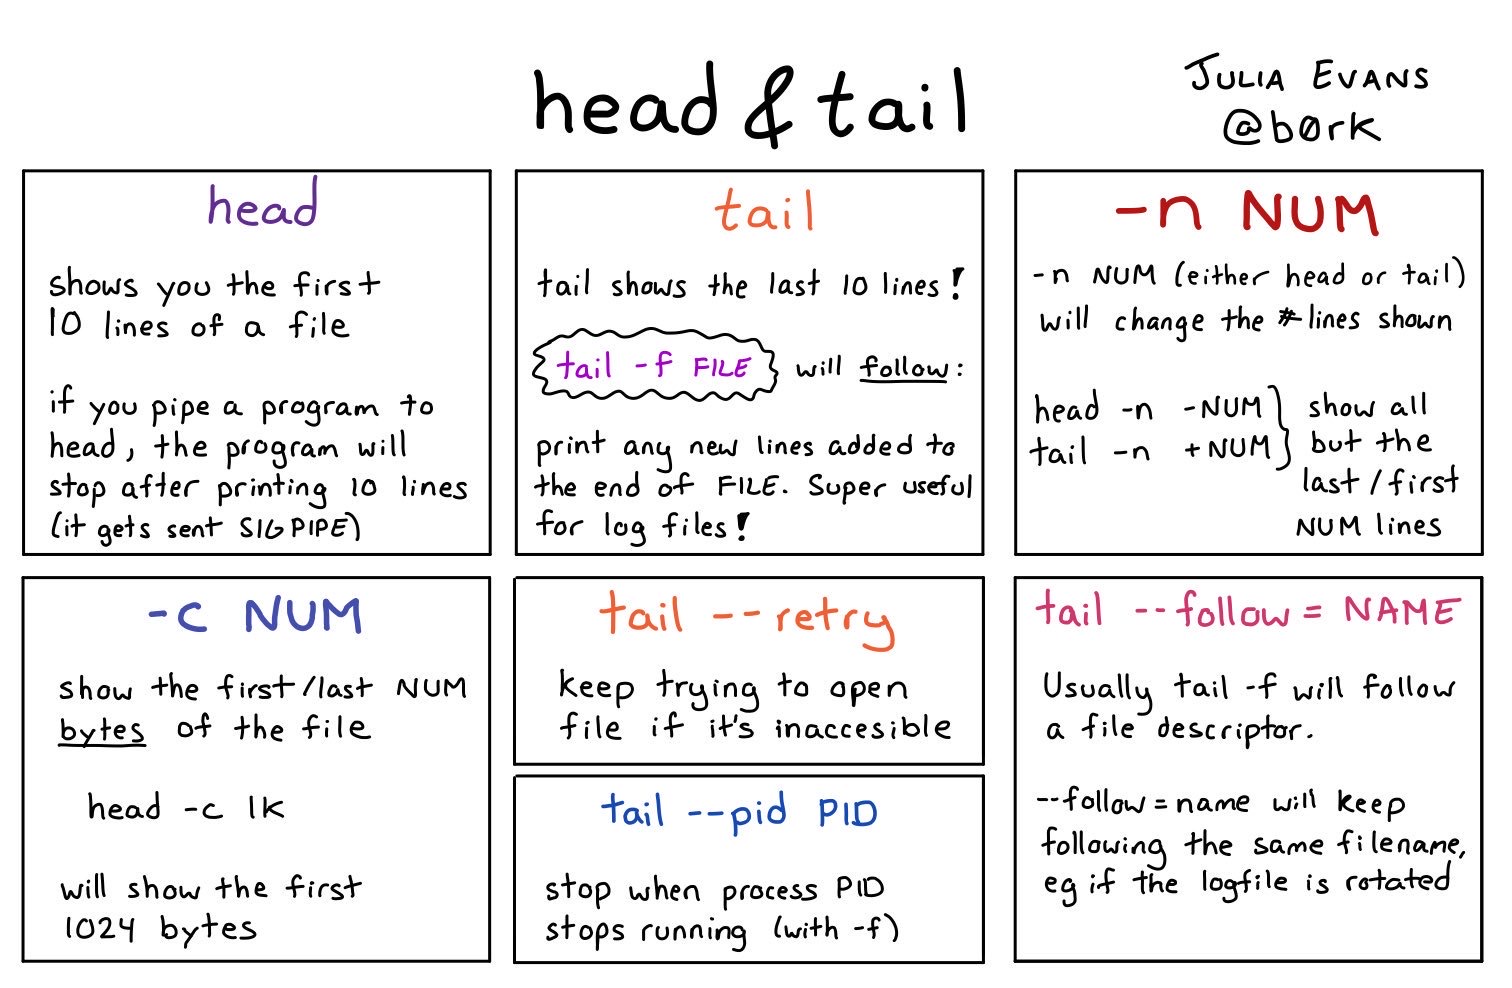 head & tail
JULIA EVANS
@b0rk
head
shows you the first
10 lines of a file
if you pipe a program to
head, the program will
stop after printing 10 lines
(it gets sent SIGPIPE)
tail
tail shows the last 10 lines!
tail -f FILE will follow:
print any new lines added to
the end of FILE. Super useful
for log files!
-n NUM
-n NUM (either head or tail)
will change the # lines shown
head -n -NUM
tail -n +NUM
show all
but the
last/first
NUM lines
-c NUM
show the first/last NUM
bytes of the file
head -c 1k
will show the first
1024 bytes
tail --retry
keep trying to open
file if it's inaccesible
tail --pid PID
stop when process PID
stops running (with -f)
tail --follow=NAME
Usually tail -f will follow
a file descriptor.
--follow=name will keep
following the same filename,
eg if the logfile is rotated